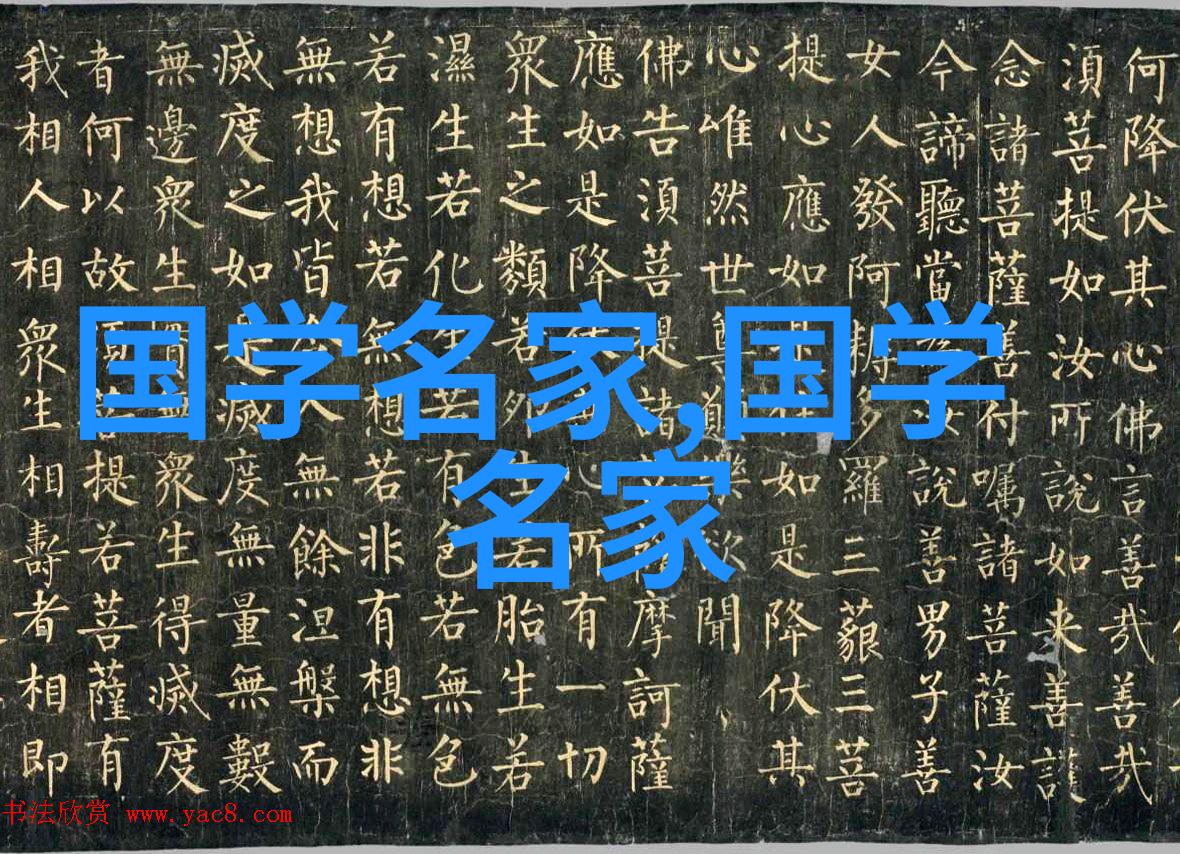 何降伏其心佛言善哉善哉
須菩提如汝所說如来善護
念諸菩薩善付嘱諸菩薩汝
今諦聽當為汝說善男子善
女人發阿耨多羅三藐三菩
提心應如是住如是降伏其
心唯然世尊願樂欲聞
佛告須菩提諸菩薩摩訶薩
應如是降伏其心所有一切
衆生之類若卵生若胎生若
濕生若化生若有色若無色
若有想若無想若非有想非
無想我皆令入無餘涅槃而
滅度之如是滅度無量無數
無邊衆生實無衆生得滅度
者何以故須菩提若菩薩有
我相人相衆生相壽者相即
国学名家,国学
名家
书法欣赏 www.yac8.com